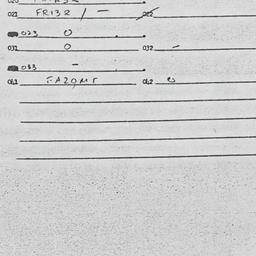 021 FRI3R / — 022
023 0
031 0 032 –
033 –
041 FAZOMT 042 0